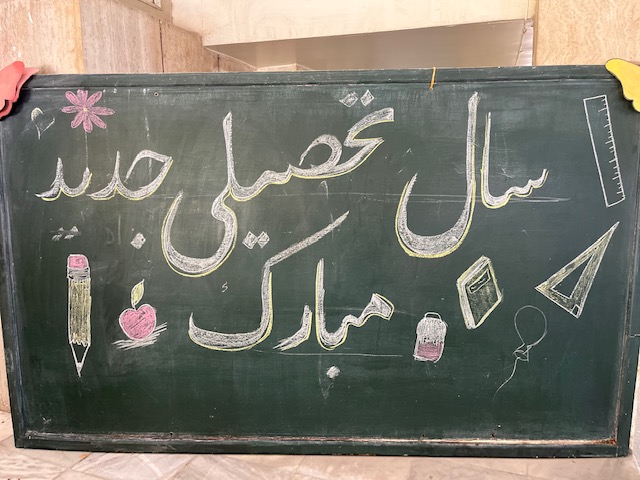 سال تحصیلی جدید
مبارک